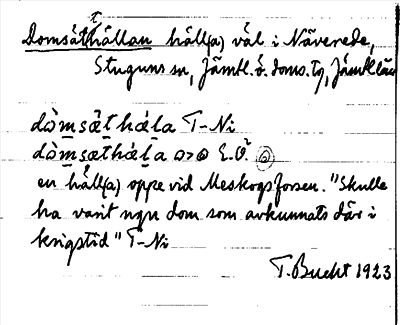 Domsäthällan häll(a) väl i Näverede,
Stuguns sn, Jämtl. ö. doms. tg, Jämtl. län
dòmsæ̀thæ̀la T-Ni
dòmsæthæ̀la E.Ö.
en häll(a) oppe vid Meskogsforsen. "Skulle
ha varit ngn dom som avkunnats där i
krigstid" T-Ni
T. Bucht 1923